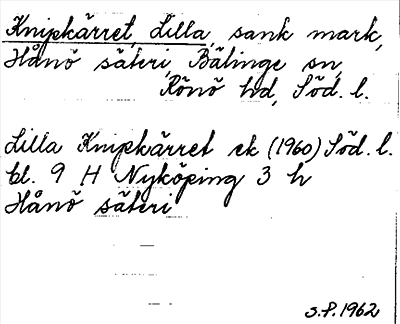 Knipkärret, Lilla, sank mark,
Hånö säteri, Bälinge sn,
Rönö hd, Söd. l.
Lilla Knipkärret ek (1960) Söd. l.
bl. 9 H Nyköping 3 h
Hånö säteri
S.P. 1962